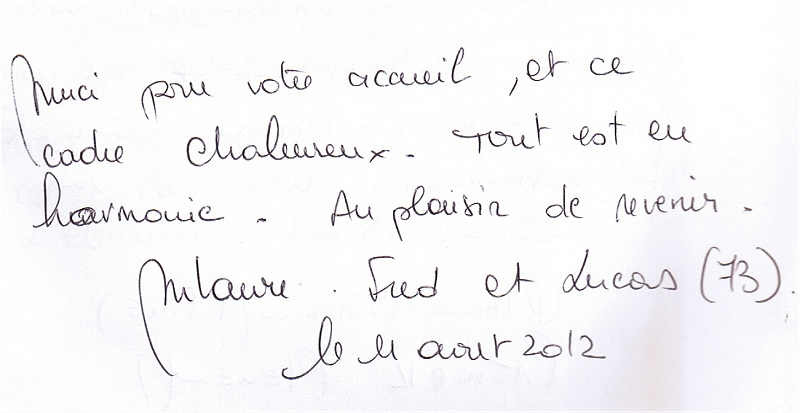 Merci pour votre accueil, et ce
cadre chaleureux. Tout est en
harmonie. Au plaisir de revenir.
Mlaure. Fred et Lucas (73).
le 11 aout 2012